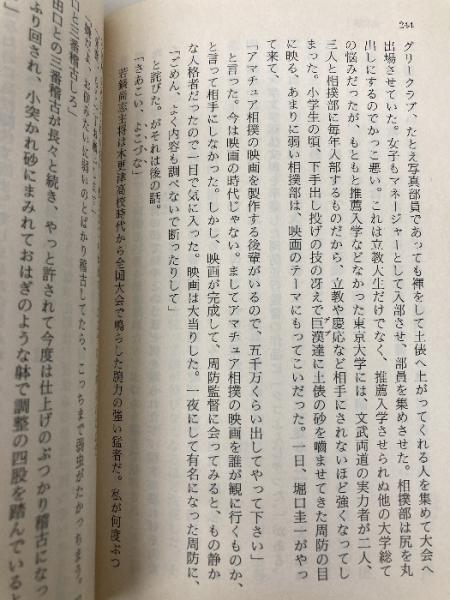 244
グリークラブ、たとえ写真部員であっても褌をして土俵へ上がってくれる人を集めて大会へ
出場させていた。女子もマネージャーとして入部させ、部員を集めさせた。相撲部は尻を丸
出しにするのでかっこ悪い。これは立教大生だけでなく、推薦入学させられぬ他の大学総て
の悩みだったが、もともと推薦入学などなかった東京大学には、文武両道の実力者が二人、
三人と相撲部に毎年入部するものだから、立教や慶応など相手にされないほど強くなってし
まった。小学生の頃、下手出し投げの技の冴えで巨漢達に土俵の砂を嚙ませてきた周防の目
に映る、あまりに弱い相撲部は、映画のテーマにもってこいだった。一日、堀口圭一がやっ
て来て、
「アマチュア相撲の映画を製作する後輩がいるので、五千万くらい出してやって下さい」
と言った。今は映画の時代じゃない。ましてアマチュア相撲の映画を誰が観に行くものか、
と言って相手にしなかった。しかし、映画が完成して、周防監督に会ってみると、もの静か
な人格者だったので一日で気に入った。映画は大当りした。一夜にして有名になった周防に、
「ごめん、よく内容も調べないで断ったりして」
と詫びた。がそれは後の話。
「さあこい、よこづな」
若鍋尚志主将は木更津高校時代から全国大会で鳴らした腕力の強い猛者だ。私が何度ぶつ
口と三番稽古しろ」
田口との三番稽古が長々と続き、やっと許されて今度は仕上げのぶつかり稽古になっ
ぶり回され、小突かれ砂にまみれておはぎのような躰で調整の四股を踏んでいると